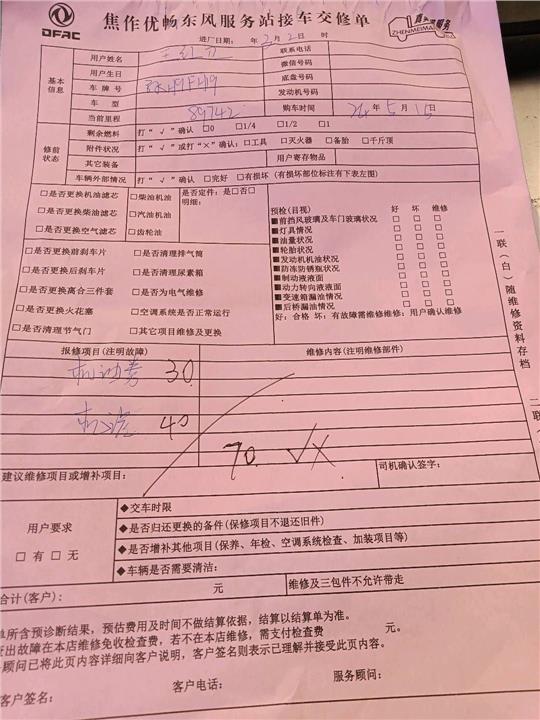 DFAC
焦作优畅东风服务站接车交修单
ZHENMEIMA
进厂日期： 年 2 月 2 日 时
基本信息
用户姓名
联系电话
用户生日
微信号码
车牌号
底盘号码
车型
发动机号码
当前里程 89742
购车时间 24 年 5 月 15 日
修前状态
剩余燃料 打“√”确认 □0 □1/4 □1/2 □1
附件状况 打“√”或打“×”确认：□工具 □灭火器 □备胎 □千斤顶
其它装备
用户寄存物品
车辆外部情况 打“√”确认 □完好 □有损坏（有损坏部位标注有下表左图）
□是否更换机油滤芯 □柴油机油
□是否更换柴油滤芯 □汽油机油
□是否更换空气滤芯 □齿轮油
是否定件：是□否□
明细：
□是否更换前刹车片 □是否清理排气筒
□是否更换后刹车片 □是否清理尿素箱
□是否更换离合三件套 □是否为电气维修
□是否更换火花塞 □空调系统是否正常运行
□是否清理节气门 □其它项目维修及更换
预检(目视) 好 坏 维修
■前挡风玻璃及车门玻璃状况 □ □ □
■灯具情况 □ □ □
■油量状况 □ □ □
■轮胎状况 □ □ □
■发动机机油状况 □ □ □
■防冻防锈瓶状况 □ □ □
■制动液液面 □ □ □
■动力转向液液面 □ □ □
■变速箱漏油情况 □ □ □
■后桥漏油情况 □ □ □
好：合格 坏：有故障需维修维修：用户确认维修
一联（白）随维修资料存档
报修项目(注明故障)
维修内容(注明维修部件)
30
机滤 40
70. √
建议维修项目或增补项目：
司机确认签字：
用户要求
□有 □无
◆交车时限
◆是否归还更换的备件(保修项目不退还旧件)
◆是否增补其他项目(保养、年检、空调系统检查、加装项目等)
◆车辆是否需要清洁：
合计(客户)： 元
维修及三包件不允许带走
单所含预诊断结果，预估费用及时间不做结算依据，结算以结算单为准。
查出故障在本店维修免收检查费，若不在本店维修，需支付检查费 元。
顾问已将此页内容详细向客户说明，客户签名则表示已理解并接受此页内容。
客户签名： 客户电话： 服务顾问：